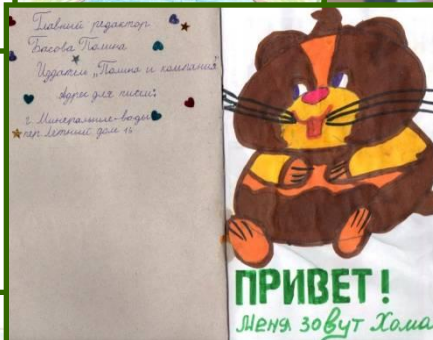 Главный редактор
Басова Полина
Издатель „Полина и компания"
Адрес для писем:
г. Минеральные-воды
пер Лётный дом 12
ПРИВЕТ!
Меня зовут Хома